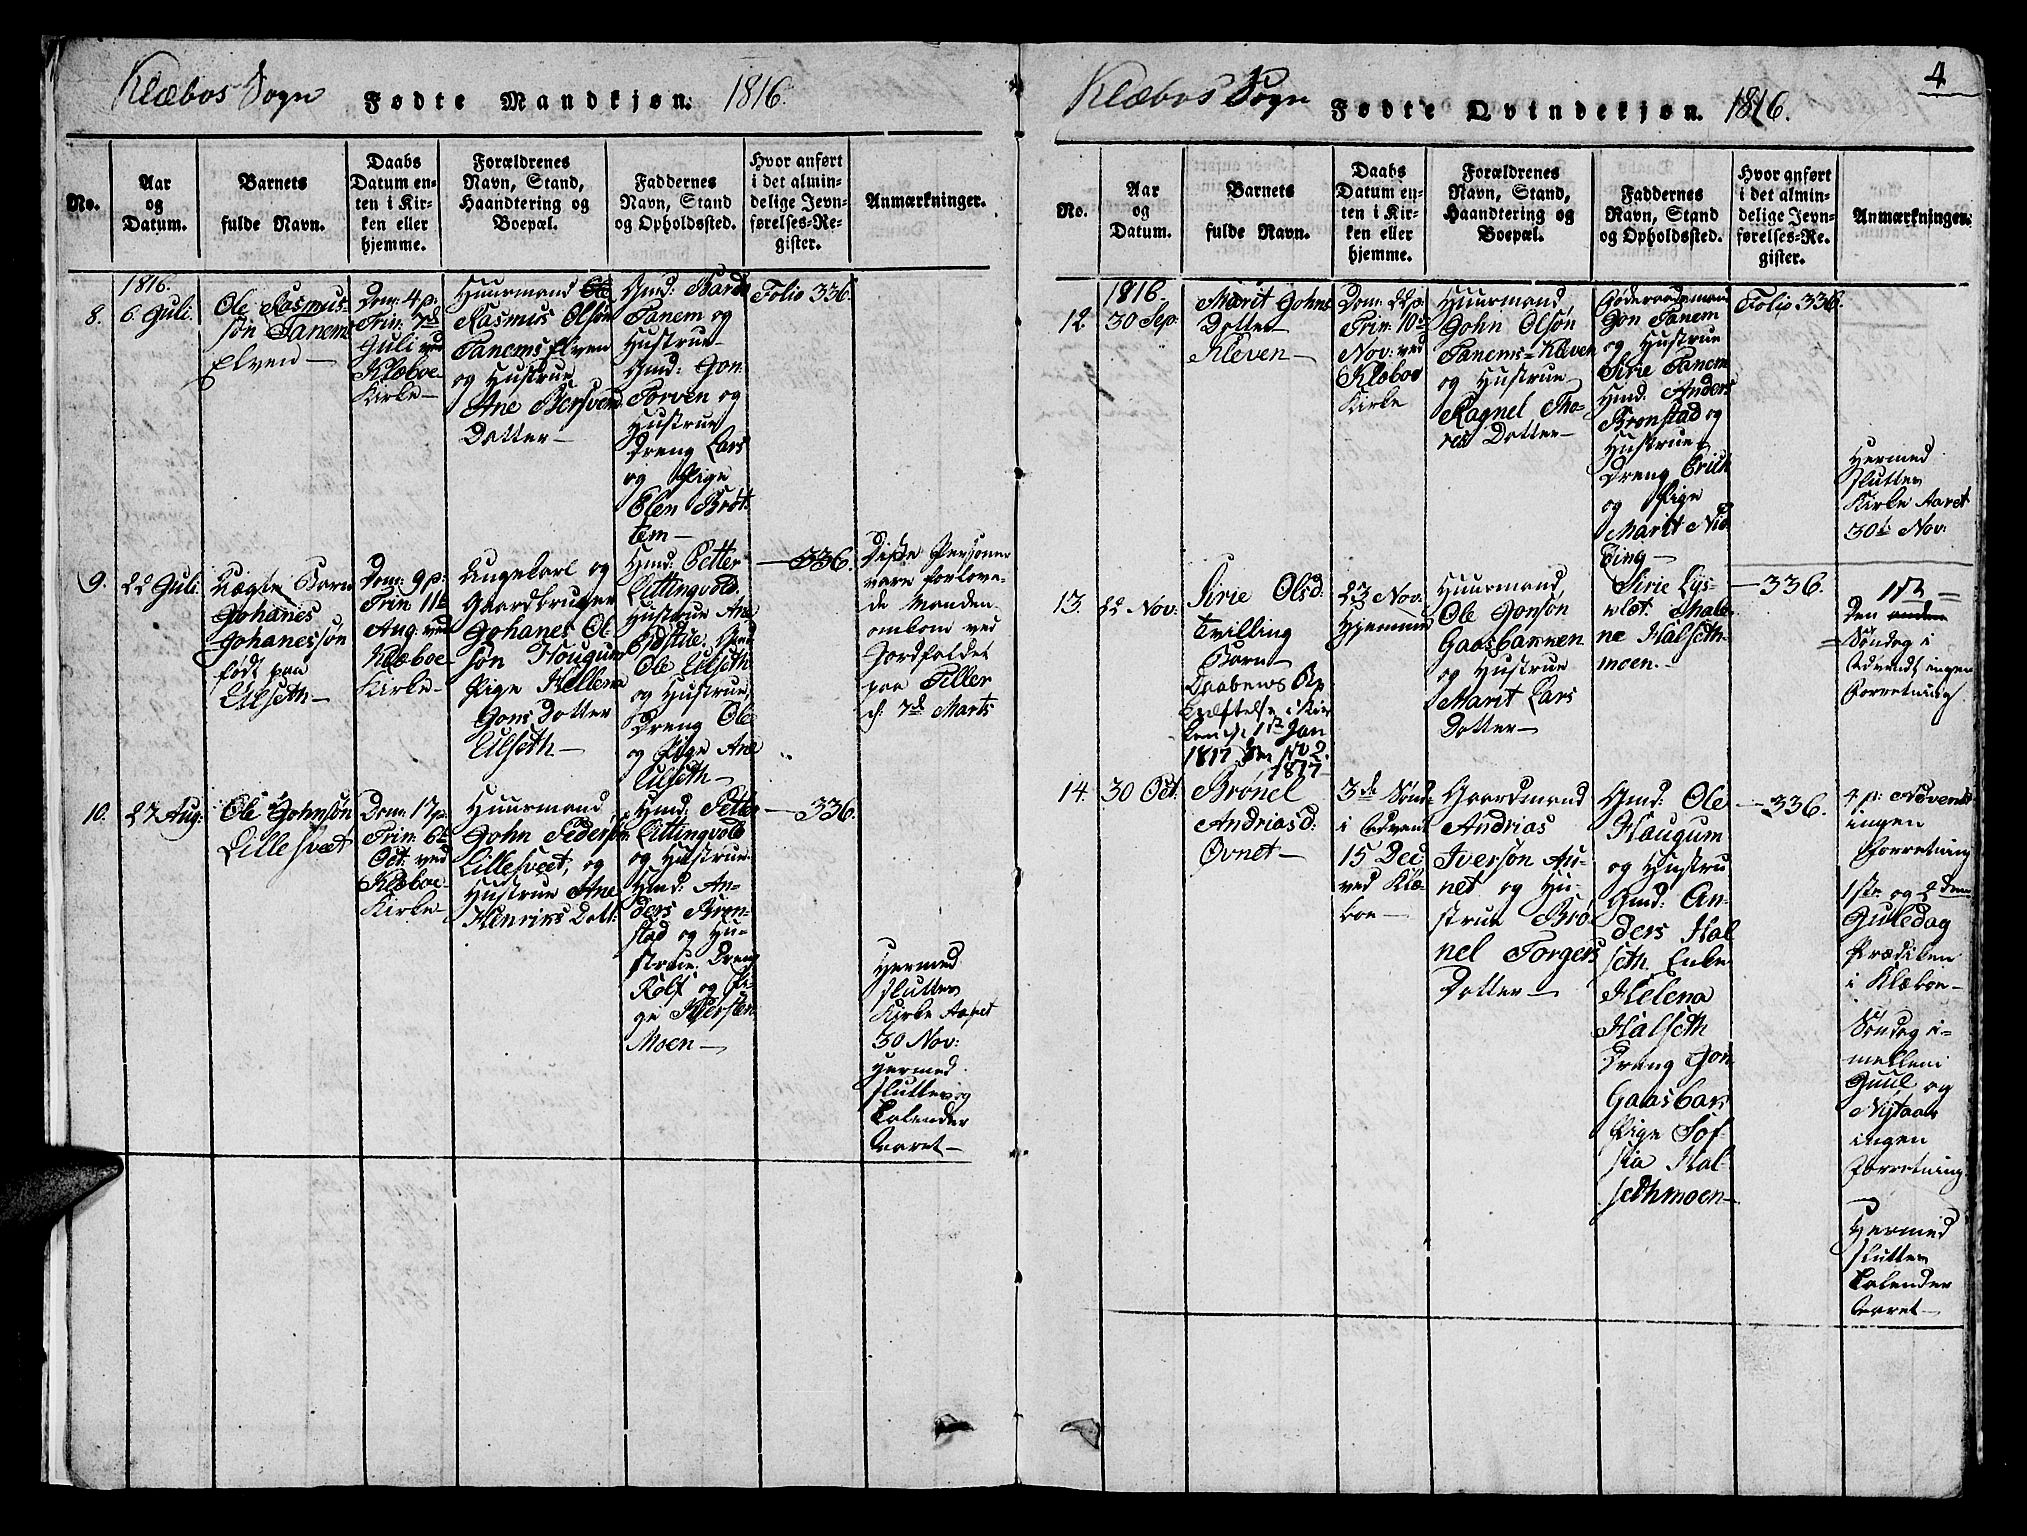 Klæboe Sogn Fødte Mandkjøn. 1816.
No.
Aar
og
Datum.
Barnets
fulde Navn.
Daabs
Datum en-
ten i Kir-
ken eller
hjemme.
Forældrenes
Navn, Stand,
Haandtering og
Boepæl.
Faddernes
Navn, Stand
og Opholdssted.
Hvor anført
i det almin-
delige Jevn-
førelses-Re-
gister.
Anmærkninger.
8.
1816.
6 Juli.
Ole Rasmus-
søn Tanems
Elven
Dom: 4 p:
Trin: 7de
Juli ved
Klæboe
Kirke
Huusmand
Rasmus Olsøn
Tanems Elven
og Hustrue
Ane Bersvend
Dotter
Gmd: Bardo
Tanem og
Hustrue
Gmd: Jon
Torven og
Hustrue
Dreng Lars
og Pige
Elen Brøt-
tem
Folio 336.
9.
22 Juli.
Uægte Barn
Johanes
Johanessøn
født paa
Ulseth
Dom: 9 p:
Trin 11te
Aug: ved
Klæboe
Kirke
Ungekarl og
Gaardbruger
Johanes Ol-
søn Hougum
Pige Hellena
Jons Dotter
Ulseth
Hmd: Petter
Littingvold
Hustrue Ane
Ole Ulseth
og Hustrue,
Dreng Ole
og Pige Ane
Ulseth
336.
Disse Personer
vare forlove-
de Manden
omkom ved
Jordfaldet
paa Tiller
d: 7de Marts
10.
27 Aug:
Ole Johnsøn
Lillesvæt
Dom: 17 p:
Trin: 6te
Oct: ved
Klæboe
Kirke
Huusmand
John Pedersøn
Lillesveet, og
Hustrue Ane
Henriks Dott:
Hmd: Petter
Littingvold
og Hustrue
Hmd: An-
ders Bron-
stad og Hu-
strue. Dreng
Rolf og Pi-
ge Kiersten
Moen
336.
Hermed
slutter
Kirke Aaret
30 Nov:
Hermed
slutter og
Calender
Aaret

Klæboe Sogn Fødte Qvindekjøn. 1816.
4
No.
Aar
og
Datum.
Barnets
fulde Navn.
Daabs
Datum en-
ten i Kir-
ken eller
hjemme.
Forældrenes
Navn, Stand,
Haandtering og
Boepæl.
Faddernes
Navn, Stand
og Opholdssted.
Hvor anført
i det almin-
delige Jevn-
førelses-Re-
gister.
Anmærkninger.
12.
1816.
30 Sep:
Marit Johns
Dotter
Kleven
Dom: 22 p:
Trin: 10de
Nov: ved
Klæboe
Kirke
Huusmand
John Olsøn
Tanems-Kleven
og Hustrue
Ragnel Tho-
res Dotter
Goderaadsmand
Jon Tanem
og Hustrue
Sirie Tanem
Hmd. Anders
Bronstad og
Hustrue
Dreng Erich
og Pige
Marit Nid-
Eing
Folio 336.
Hermed
slutter
Kirke Aaret
30te Nov:
13.
22 Nov:
Sirie Olsd:
Tvilling
Barn
Daabens Be-
kræftelse i Kir-
ken d: 1ste Jan
1817 No 2
1817
23 Nov:
Hjemme
Huusmand
Ole Jonsøn
Gaasbakken
og Hustrue
Marit Lars
Dotter
Sirie Lys-
Male-
ne Halseth-
moen.
336.
1ste
Den anden
Søndag i
Advendt ingen
Forretning
14.
30 Oct:
Brønel
Andriasd:
Ovnet
3de Sønd:
i Advent
15 Dec
ved Klæ-
boe
Gaardmand
Andrias
Iversøn Au-
net og Hu-
strue Brø-
nel Torgers
Dotter
Gmd: Ole
Haugum
og Hustru
Gmd: An-
ders Hal-
seth. Enke
Helena
Halseth
Dreng Jon
Gaasbak
Pige Sof-
fia Hal-
sethmoen
336.
4 p: Advent
ingen
Forretning
1ste og 2den
Juledag
Prædiken
i Klæboe
Søndag i-
mellem
Juul og
Nytaar
ingen
Forretning
Hermed
slutter
Calender
Aaret